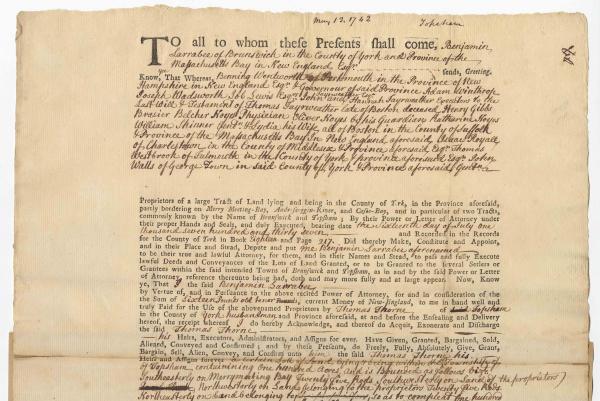 May 13. 1742 Topsham
TO all to whom these Presents shall come, Benjamin
Larrabee of Brunswick in the County of York and Province of the
Massachusetts Bay in New England Esqr. sends, Greeting.
Know, Yea, That Whereas Benning Wentworth of Portsmouth in the Province of New
Hampshire in New England Esqr. & Governour of said Province Adam Winthrop
Joseph Wadsworth Job Lewis Esqrs. John and Hannah Fayerweather Executors to the
Last Will & Testament of Thomas Fayerweather Late of Boston deceased Henry Gibbs
Brasier Belcher Noyes Physician Oliver Noyes by his Guardian Katharine Noyes
William Skinner & Lydia his Wife, all of Boston in the County of Suffolk
& Province of the Massachusetts Bay In New England aforesaid, Isaac Royall
of Charlestown in the County of Middlesex & Province aforesaid Esqr. Thomas
Westbrook of Falmouth in the County of York & province aforesaid Esqr. John
Watts of George Town in said County of York & Province aforesaid
Proprietors of a large Tract of Land lying and being in the County of York, in the Province aforesaid,
partly bordering on Merry Meeting-Bay, Andr-scoggin-River, and Casco-Bay, and in particular of two Tracts,
commonly known by the Name of Brunswick and Topsham; By their Power or Letter of Attorney under
their proper Hands and Seals, and duly Executed, bearing date the sixteenth day of July one
thousand seven hundred and thirty seven and Recorded in the Records
for the County of York in Book and Page 217. Did thereby Make, Constitute and Appoint,
and in their Place and Stead, Depute and put me Benjamin Larrabee aforenamed
to be their true and lawful Attorney, for them, and in their Names and Stead, to pass and fully Execute
lawful Deeds and Conveyances of the Lots of Land Granted, or to be Granted to the several Settlers or
Grantees within the said intended Towns of Brunswick and Topsham, as in and by the said Power or Letter
of Attorney, reference thereunto being had, doth and may more fully and at large appear. Now, Know
ye, That I the said Benjamin Larrabee
by Vertue of, and in Pursuance to the above recited Power of Attorney, for and in consideration of
the Sum of Sixteen Pounds old tenor current Money of New-England, to me in hand well and
truly Paid for the Use of the abovenamed Proprietors by Thomas Thorne of Topsham
in the County of York, husbandman, and Province aforesaid, at and before the Ensealing and Delivery
hereof, the receipt whereof I do hereby Acknowledge, and thereof do Acquit, Exonerate and Discharge
the said Thomas Thorne
his Heirs, Executors, Administrators, and Assigns for ever. Have Given, Granted, Bargained, Sold,
Aliened, Conveyed and Confirmed; and by these Presents, do Freely, Fully, Absolutely, Give, Grant,
Bargain, Sell, Alien, Convey, and Confirm unto him the said Thomas Thorne his
Heirs and Assigns forever a certain Lott of Land lying & being within the Township
of Topsham, containing one hundred Acres and is Bounded as follows vizt.
Southeasterly on Merrymeeting Bay Twenty five Rods Southwesterly on Land of the proprietors
Northwesterly on Land belonging to the Proprietors Twenty five Rods
Northeasterly on Land belonging to So as to compleat the hundred